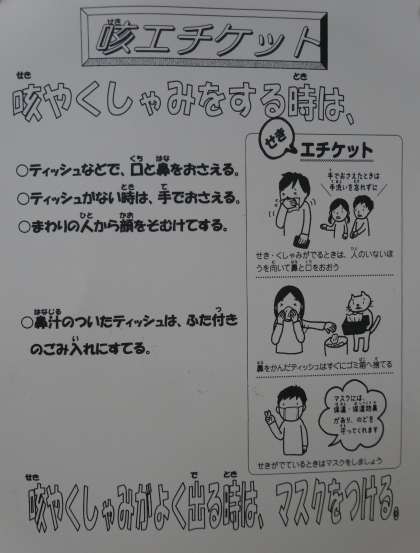 咳エチケット
咳やくしゃみをする時は、
○ティッシュなどで、口と鼻をおさえる。
○ティッシュがない時は、手でおさえる。
○まわりの人から顔をそむけてする。
○鼻汁のついたティッシュは、ふた付き
のごみ入れにすてる。
せき
エチケット
手でおさえたときは
手洗いを忘れずに
せき・くしゃみがでるときは、人のいないほ
うを向いて鼻と口をおおう
鼻をかんだティッシュはすぐにゴミ箱へ捨てる
マスクには、
保温・保湿・防鼻
があり、のどを
守ってくれます
せきがでているときはマスクをしましょう
咳やくしゃみがよく出る時は、マスクをつける。